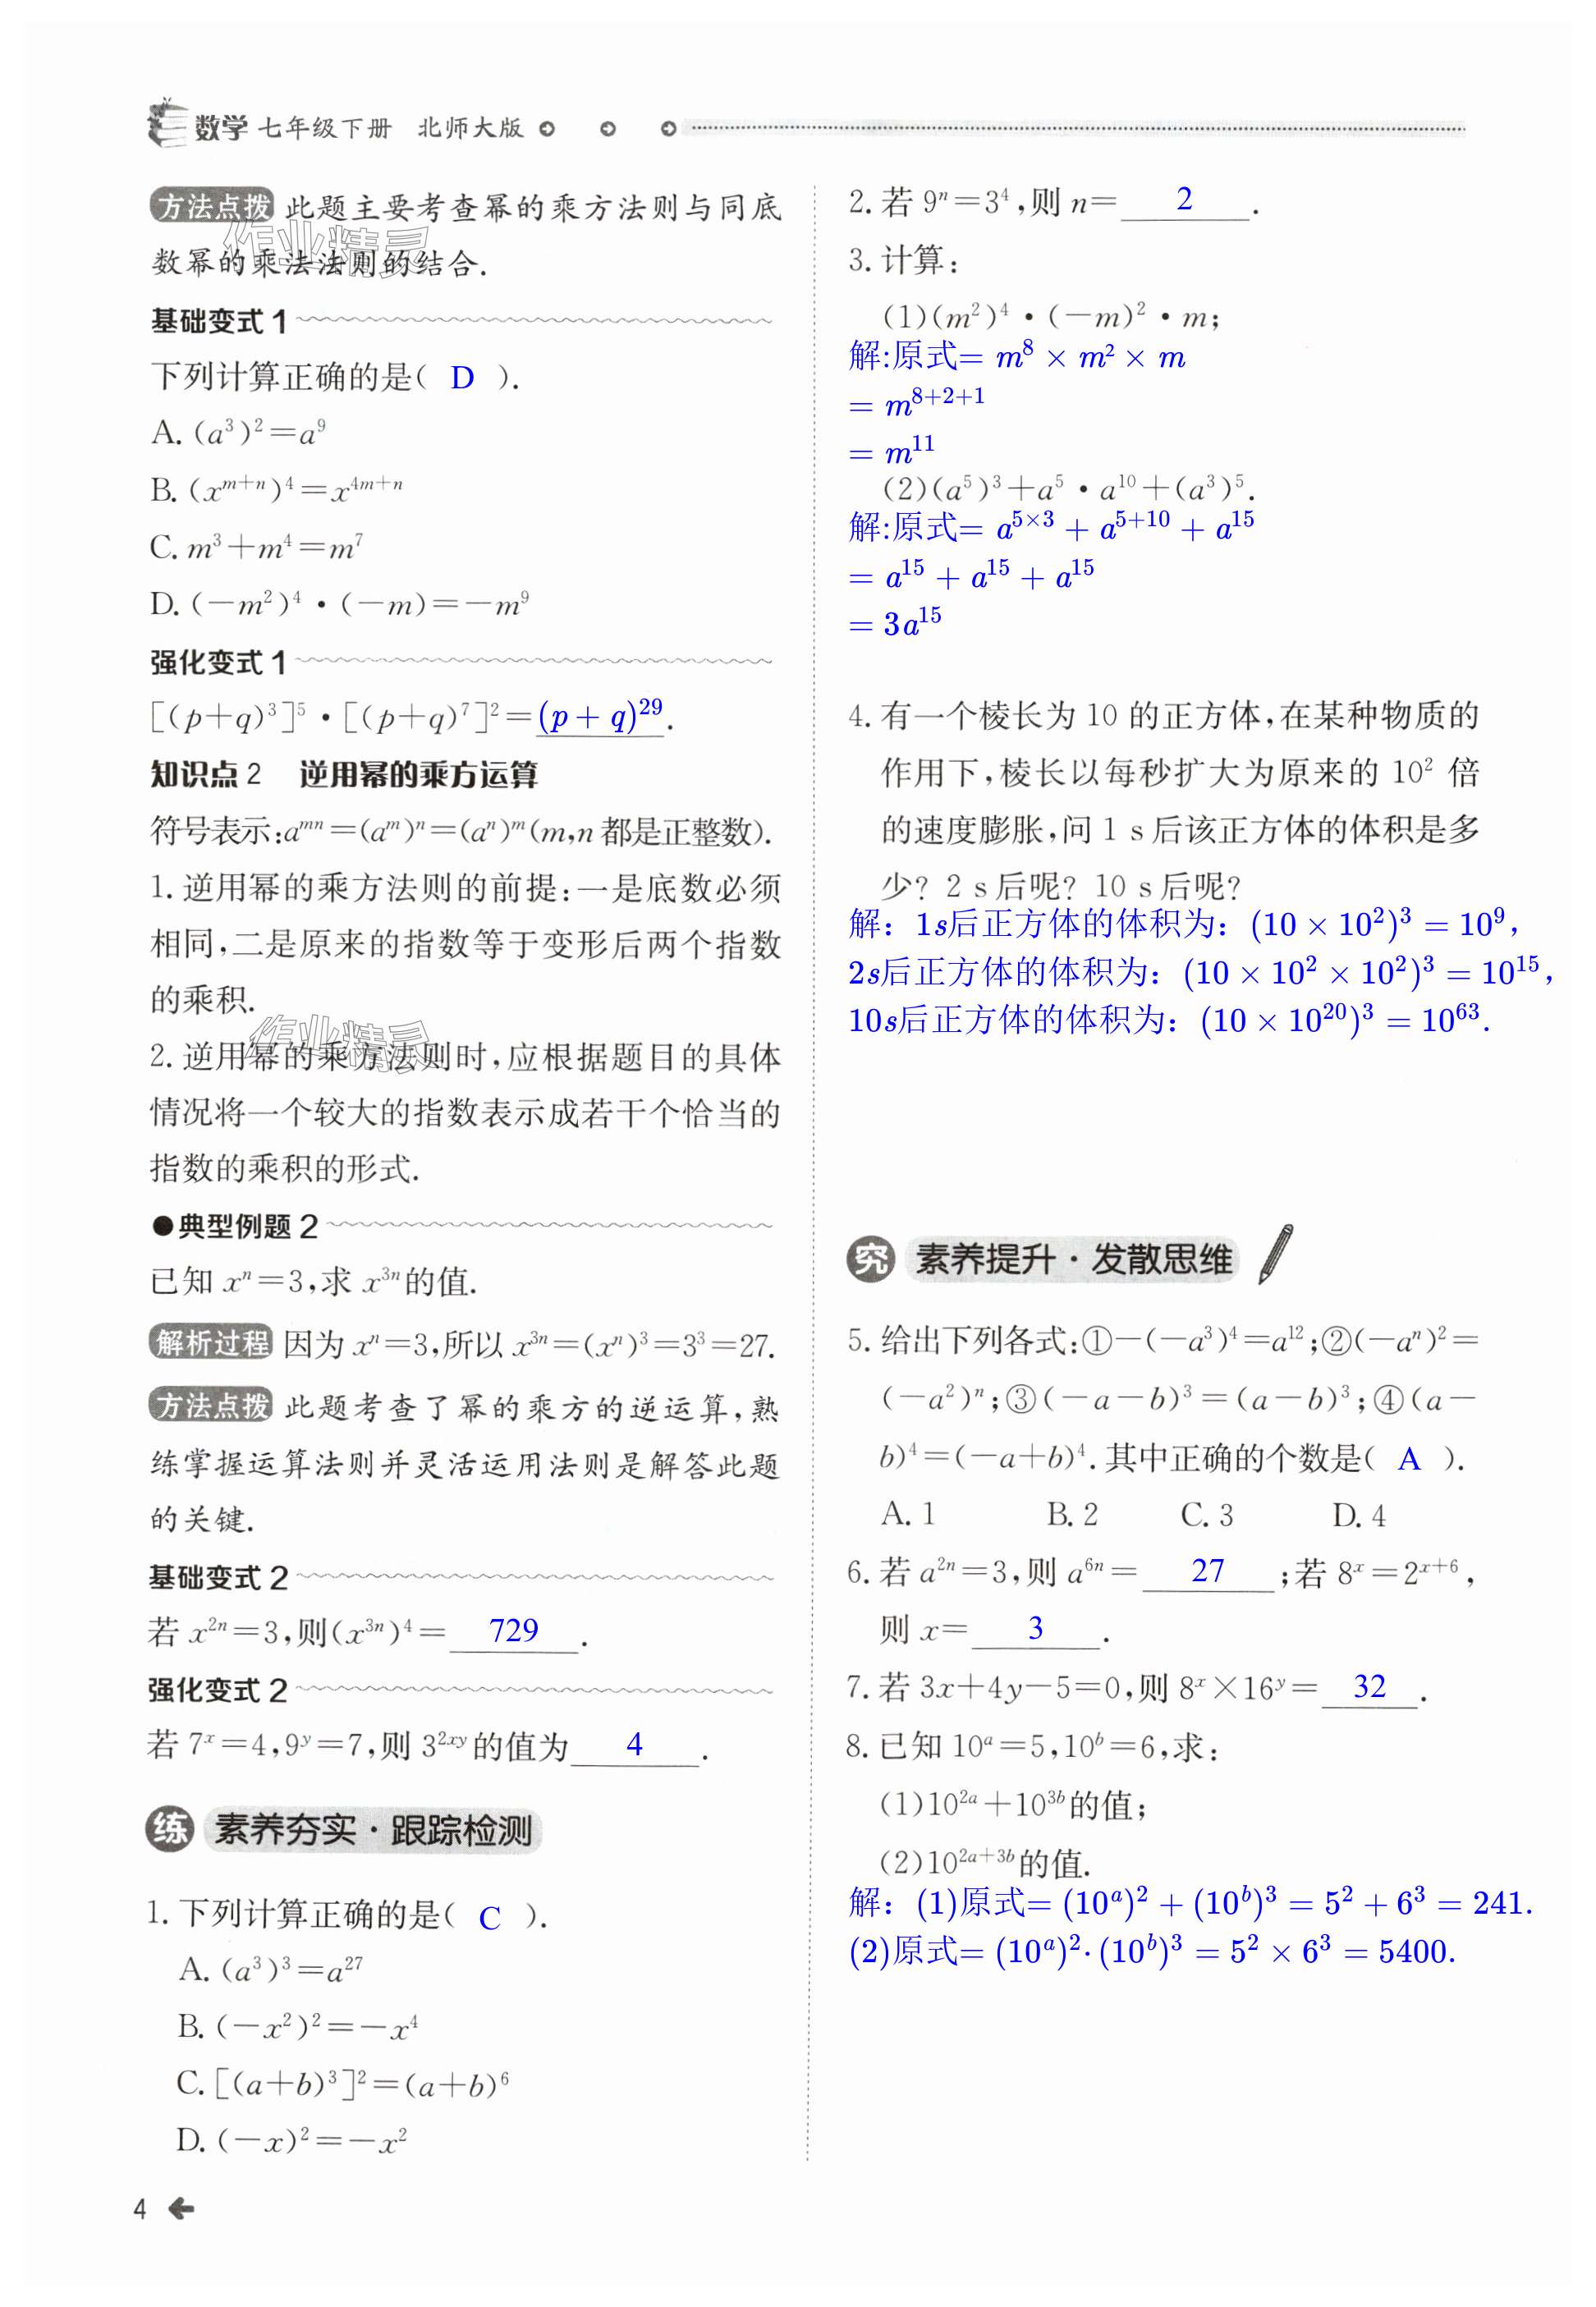 数学 七年级下册 北师大版
方法点拨 此题主要考查幂的乘方法则与同底
数幂的乘法法则的结合.
作业精灵
基础变式1
下列计算正确的是( D ).
A. (a³)²=a⁹
B. (xᵐ⁺ⁿ)⁴=x⁴ᵐ⁺ⁿ
C. m³+m⁴=m⁷
D. (-m²)⁴·(-m)=-m⁹
强化变式1
[(p+q)³]⁵·[(p+q)⁷]²=(p+q)²⁹.
知识点2 逆用幂的乘方运算
符号表示:aᵐⁿ=(aᵐ)ⁿ=(aⁿ)ᵐ(m,n都是正整数).
1. 逆用幂的乘方法则的前提:一是底数必须
相同,二是原来的指数等于变形后两个指数
的乘积.
作业精灵
2. 逆用幂的乘方法则时,应根据题目的具体
情况将一个较大的指数表示成若干个恰当的
指数的乘积的形式.
●典型例题2
已知 xⁿ=3,求 x³ⁿ的值.
解析过程 因为 xⁿ=3,所以 x³ⁿ=(xⁿ)³=3³=27.
方法点拨 此题考查了幂的乘方的逆运算,熟
练掌握运算法则并灵活运用法则是解答此题
的关键.
基础变式2
若 x²ⁿ=3,则(x³ⁿ)⁴= 729 .
强化变式2
若 7ˣ=4,9ʸ=7,则 3²ˣʸ的值为 4 .
练 素养夯实·跟踪检测
1. 下列计算正确的是( C ).
A. (a³)³=a²⁷
B. (-x²)²=-x⁴
C. [(a+b)³]²=(a+b)⁶
D. (-x)²=-x²
4
2. 若 9ⁿ=3⁴,则 n= 2 .
3. 计算:
(1)(m²)⁴·(-m)²·m;
解:原式= m⁸ × m² × m
= m⁸⁺²⁺¹
= m¹¹
(2)(a⁵)³+a⁵·a¹⁰+(a³)⁵.
解:原式= a⁵ˣ³ + a⁵⁺¹⁰ + a¹⁵
= a¹⁵ + a¹⁵ + a¹⁵
= 3a¹⁵
4. 有一个棱长为 10 的正方体,在某种物质的
作用下,棱长以每秒扩大为原来的 10² 倍
的速度膨胀,问 1 s后该正方体的体积是多
少? 2 s后呢? 10 s后呢?
解：1s后正方体的体积为：(10 × 10²)³ = 10⁹，
2s后正方体的体积为：(10 × 10² × 10²)³ = 10¹⁵，
10s后正方体的体积为：(10 × 10²⁰)³ = 10⁶³.
究 素养提升·发散思维
5. 给出下列各式:①-(-a³)⁴=a¹²;②(-aⁿ)²=
(-a²)ⁿ;③(-a-b)³=(a-b)³;④(a-
b)⁴=(-a+b)⁴.其中正确的个数是( A ).
A. 1 B. 2 C. 3 D. 4
6. 若 a²ⁿ=3,则 a⁶ⁿ= 27 ;若 8ˣ=2ˣ⁺⁶,
则 x= 3 .
7. 若 3x+4y-5=0,则 8ˣ×16ʸ= 32 .
8. 已知 10ᵃ=5,10ᵇ=6,求:
(1)10²ᵃ+10³ᵇ的值;
(2)10²ᵃ⁺³ᵇ的值.
解：(1)原式= (10ᵃ)² + (10ᵇ)³ = 5² + 6³ = 241.
(2)原式= (10ᵃ)²·(10ᵇ)³ = 5² × 6³ = 5400.